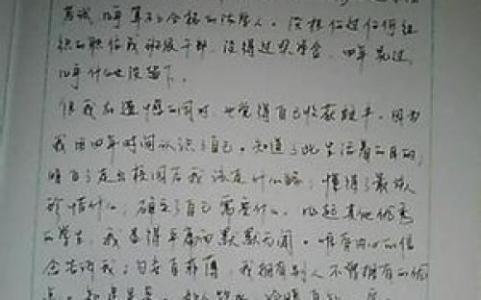 考试，四年算不上合格的法学人。没担任过任何组
织的职位或班级干部，没得过奖学金，四年晃过，
四年什么也没留下。
但我在遗憾的同时，也觉得自己收获颇丰。因为
我用四年时间认识了自己。知道了此生活着的目的，
明白了走出校园后我该走什么路，懂得了最该
珍惜什么，确立了自己需要什么。比起其他优秀
的学生，我显得平庸而默默无闻。唯有内心的信
念告诉我：勿妄自菲薄，我拥有别人不曾拥有的